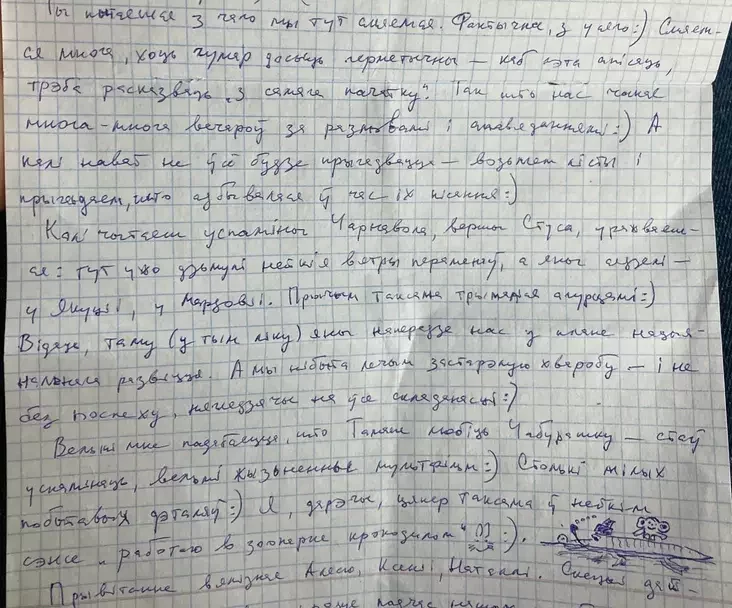 Ты пытаешся з чаго мы тут смяемся. Фактычна, з усяго:) Смяем-
ся многа, хоць гумар досыць герметычны — каб гэта апісаць,
трэба расказваць "з самага пачатку". Так што нас чакае
многа-многа вечароў за размовамі і апавяданнямі:) А
калі нават не ўсё будзе прыгадвацца — возьмем лісты і
прыгадаем, што адбывалася ў час іх пісання:)
Калі чытаеш успаміны Чарнавола, вершы Стуса, уражвае-
ся: тут ужо дзьмулі нейкія вятры перамены, а яны сядзелі —
у Якуціі, у Мардовіі. Прычым таксама трымаліся агурцамі:)
Відаць, таму (у тым ліку) яны наперадзе нас у плане нацыя-
нальнага развіцця. А мы нібыта лечым застарэлую хваробу — і не
без поспеху, нягледзячы на ўсе складанасці:)
Вельмі мне падабаецца, што Таляш любіць Чабурашку — стаў
успамінаць, вельмі жызьненные мультфільм:) Столькі мілых
побытавых дэталяў:) Я, дарэчы, цяпер таксама ў нейкім
сэнсе "работаю в зоопарке крокодилом":).
Прывітанне вялізнае Алесю, Ксені, Наталлі.